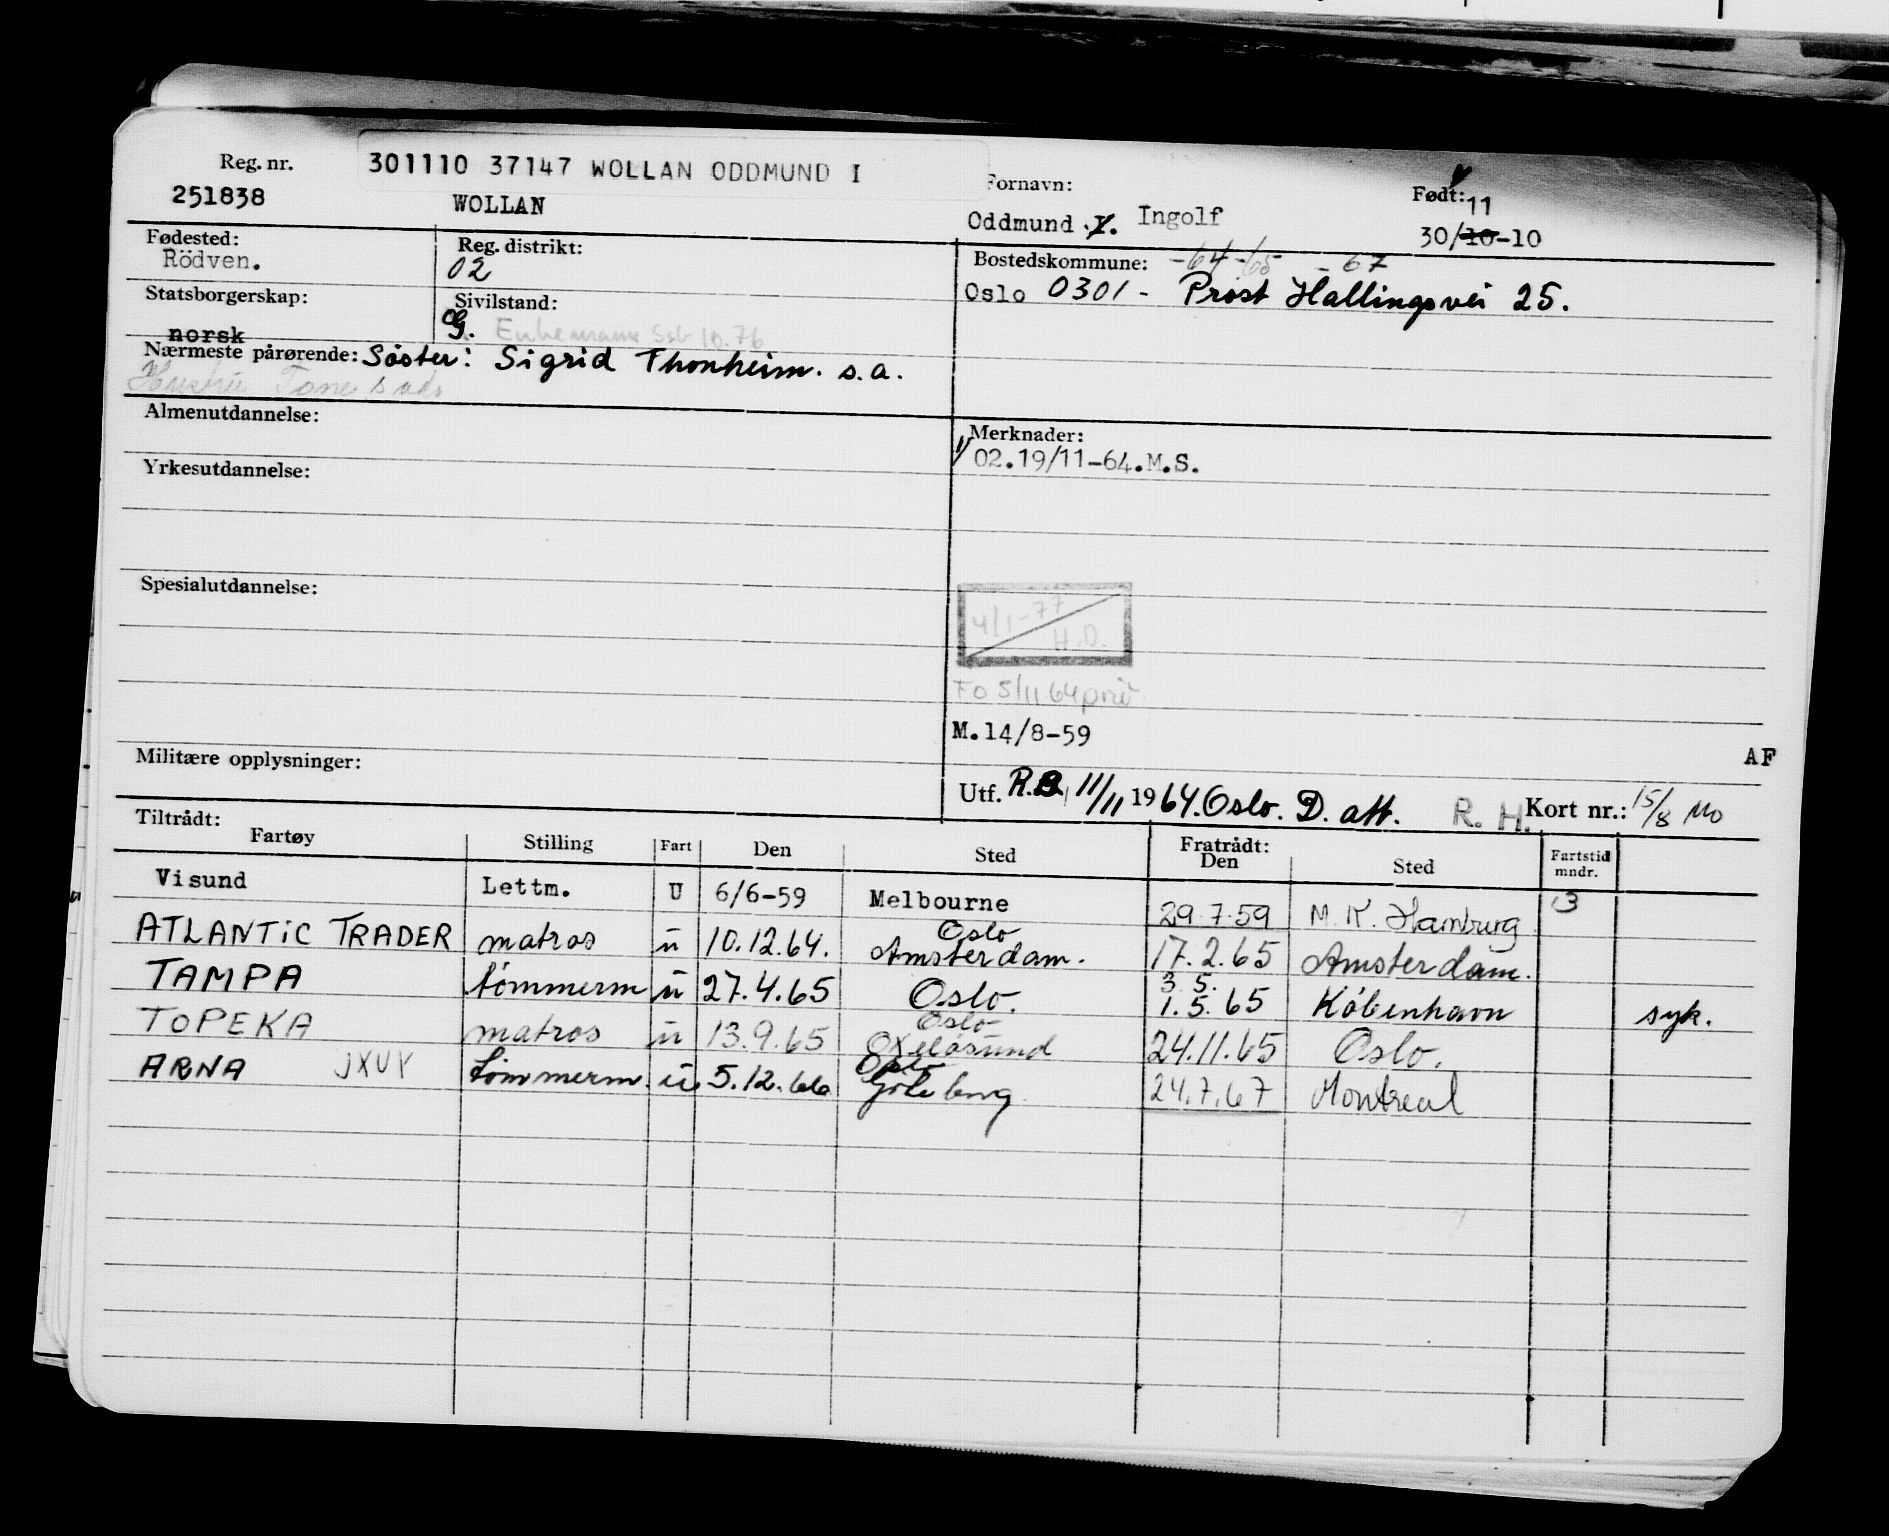 Reg. nr. 301110 37147 WOLLAN ODDMUND I Fornavn: Født: 11
251838 WOLLAN Oddmund .I. Ingolf 30/10-10
Fødested: Reg. distrikt: Bostedskommune: -64-65 -67
Rödven. 02 Oslo 0301 - Prost Hallingsvei 25.
Statsborgerskap: Sivilstand:
norsk G. Enkemann 10.76
Nærmeste pårørende: Søster: Sigrid Thonheim. s.a.
Hustru Tone
Almenutdannelse: Merknader:
02.19/11-64.M.S.
Yrkesutdannelse:
Spesialutdannelse:
4/1-77
H.O.
Fo 5/11 64 priv.
M.14/8-59
AF
Militære opplysninger: Utf. R.B. 11/11 1964. Oslo. D. att. R. H. Kort nr.: 15/8 Mo
Tiltrådt: Fratrådt:
Fartøy Stilling Fart Den Sted Den Sted Fartstid mndr.
Visund Lettm. U 6/6-59 Melbourne 29.7.59 M.K. Hamburg 3
ATLANTiC TRADER matros u 10.12.64. Oslo Amsterdam. 17.2.65 Amsterdam.
TAMPA tømmerm u 27.4.65 Oslo. 3.5. 1.5.65 København syk.
TOPEKA matros u 13.9.65 Oslo Oxeløsund 24.11.65 Oslo.
ARNA JXUY tømmerm. u 5.12.66 Oslo Göteborg 24.7.67 Montreal